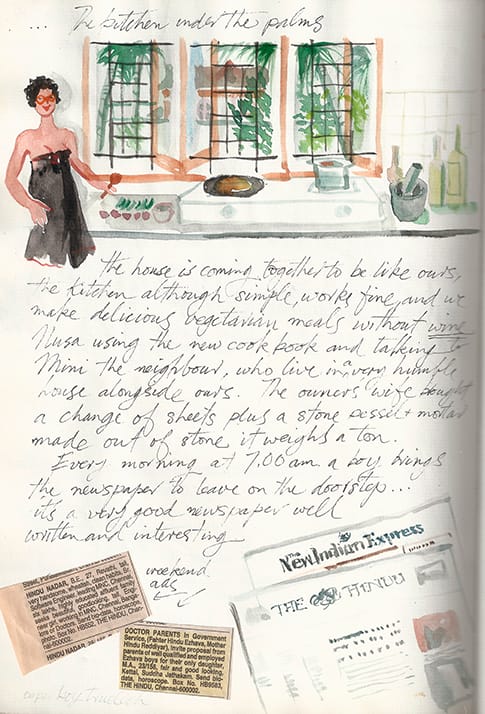 ... The kitchen under the palms
the house is coming together to be like ours,
the kitchen although simple, works fine, and we
make delicious vegetarian meals without wine
Nusa using the new cook book and talking to
Mimi the neighbour, who live in a very humble
house alongside ours. The owners wife bought
a change of sheets plus a stone pessel + mortar
made out of stone it weighs a ton.
Every morning at 7.00 am a boy brings
the newspaper to leave on the doorstep...
it's a very good newspaper well
written and interesting
weekend
ads
The New Indian Express
THE HINDU
HINDU NADAR, B.E., 27, Revathi, tall,
very handsome, leading, clean habits,
Software Engineer, leading MNC, Chennai,
HINDU NADAR
DOCTOR PARENTS in Government
Service, (Father Hindu Ezhava, Mother
Hindu Reddiyar), invite proposal from
parents of well qualified and employed
Ezhava boys for their only daughter,
M.A., 23/158, fair and good looking,
Kettai, Suddha Jathakam. Send bio-
data, horoscope. Box No. HB9583,
THE HINDU, Chennai-600002.